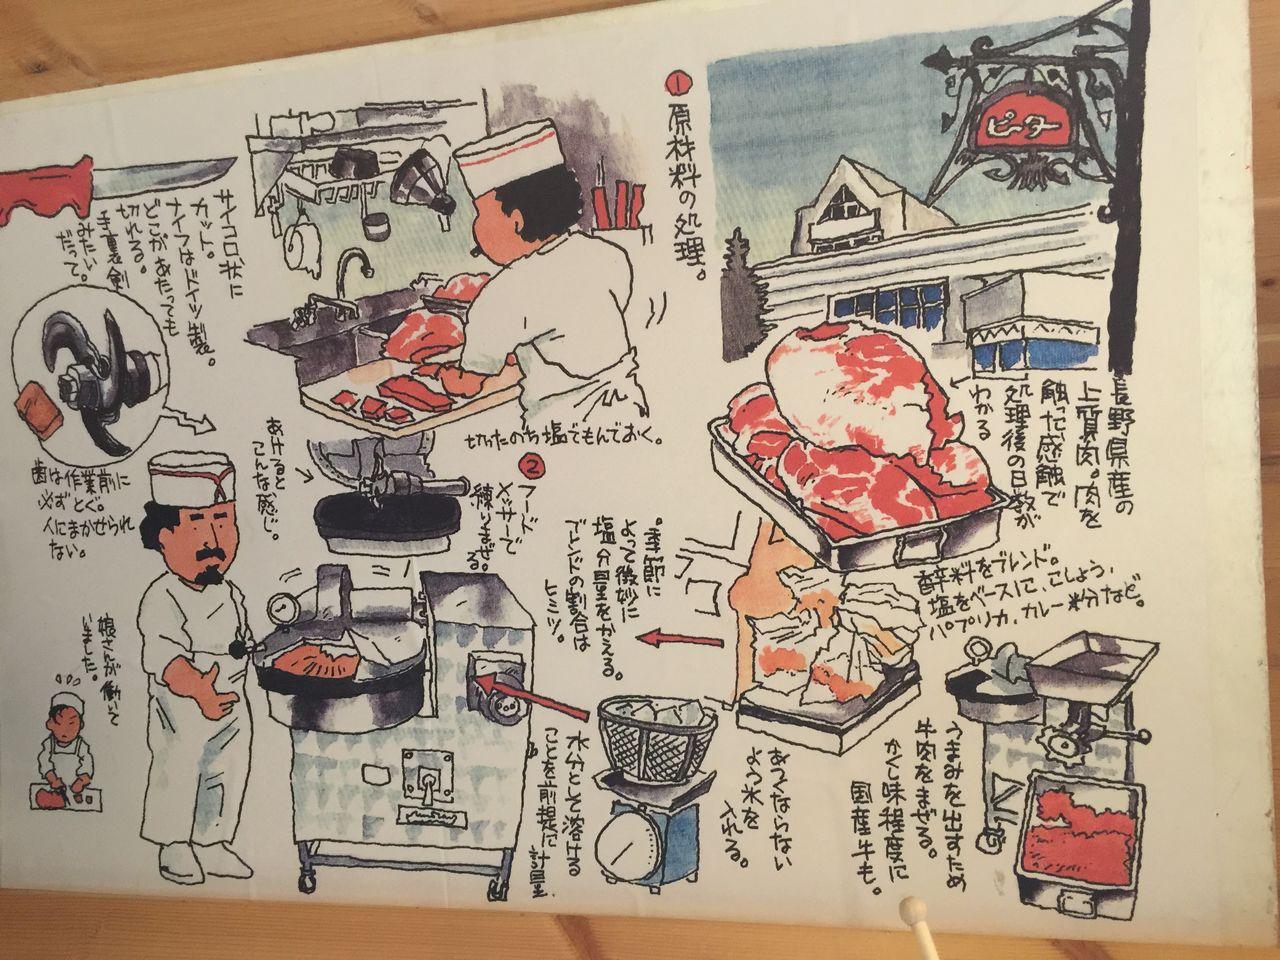 ピーター
①原材料の処理。
長野県産の
上質肉。肉を
触った感触で
処理後の日数が
わかる
切ったのち塩でもんでおく。
サイコロ状に
カット。
ナイフはドイツ製。
どこがあたっても
切れる。
手裏剣
みたい
だって。
歯は作業前に
必ずとぐ。
人にまかせられ
ない。
あけると
こんな感じ。
②フード
メッサーで
練りまぜ
る。
香辛料をブレンド。
塩をベースに、こしょう、
パプリカ、カレー粉など。
・季節に
よって微妙に
塩分量をかえる。
ブレンドの割合は
ヒミツ。
娘さんが働いて
いました。
うまみを出すため
牛肉をまぜる。
かくし味程度に
国産牛も。
あつくならない
よう氷を
入れる。
水分として溶ける
ことを前提に計量